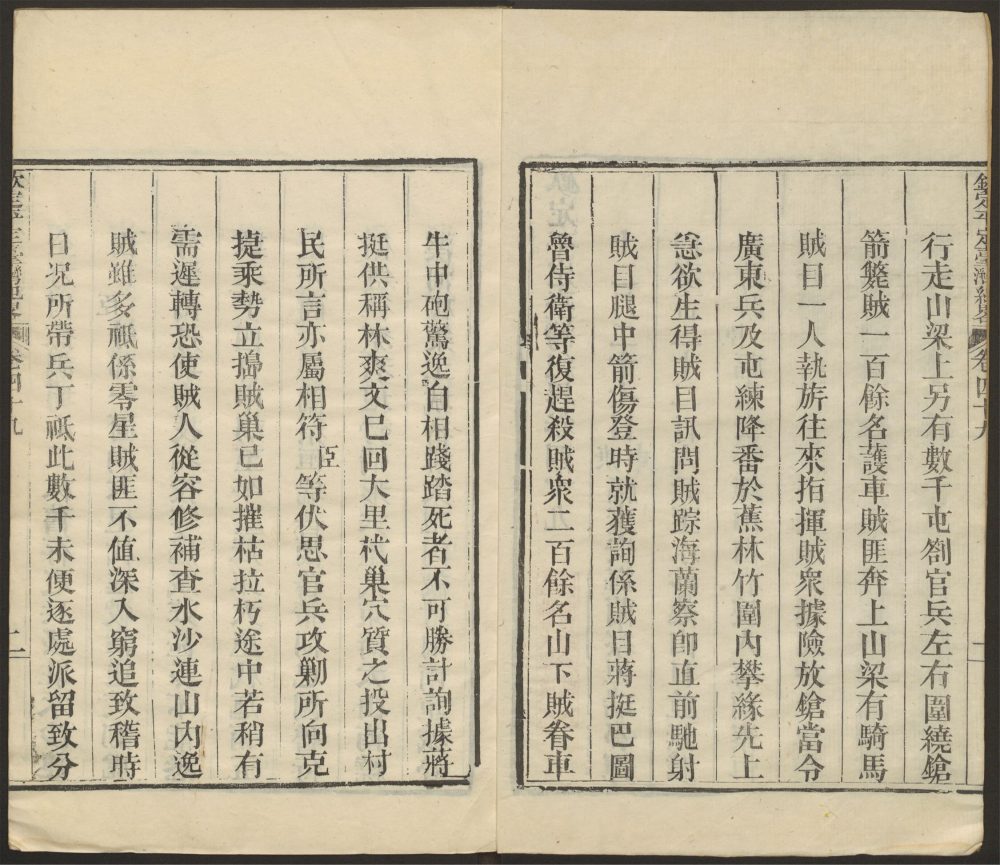 欽定平定臺灣紀略 卷四十九
行走山梁上另有數千屯劄官兵左右圍繞鎗
箭斃賊一百餘名護車賊匪奔上山梁有騎馬
賊目一人執旂往來指揮賊衆據險放鎗當令
廣東兵及屯練降番於蕉林竹圍內攀緣先上
並欲生得賊目訊問賊踪海蘭察卽直前馳射
賊目腿中箭傷登時就獲詢係賊目蔣挺巴圖
魯侍衛等復趕殺賊衆二百餘名山下賊眷車
牛中砲驚逸自相踐踏死者不可勝計詢據蔣
挺供稱林爽文已回大里杙巢穴質之投出村
民所言亦屬相符臣等伏思官兵攻剿所向克
捷乘勢立搗賊巢已如摧枯拉朽途中若稍有
需遲轉恐使賊人從容修補查水沙連山內逸
賊雖多祗係零星賊匪不值深入窮追致稽時
日況所帶兵丁祗此數千未便逐處派留致分
欽定平定臺灣紀略 卷四十九 二